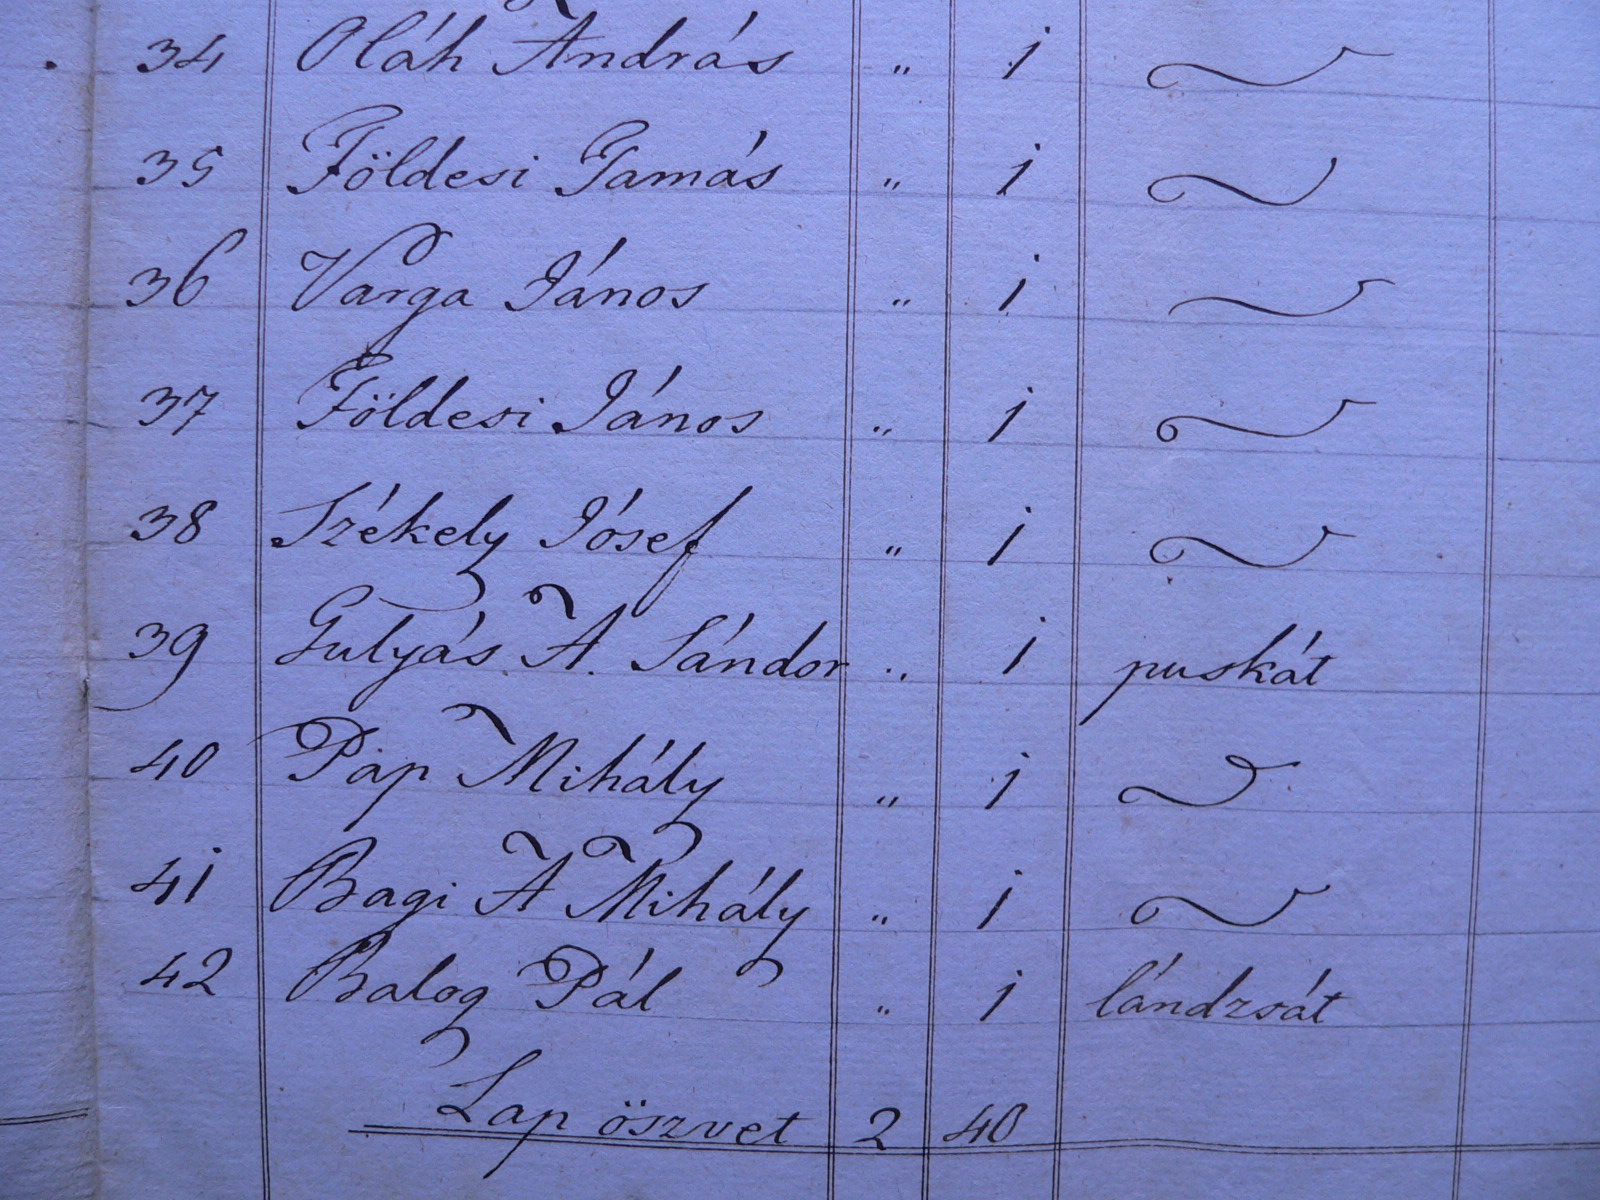 34 Oláh András „ 1 ~
35 Földesi Tamás „ 1 ~
36 Varga János „ 1 ~
37 Földesi János „ 1 ~
38 Székely Jósef „ 1 ~
39 Gulyás A. Sándor „ 1 puskát
40 Páp Mihály „ 1 ~
41 Bagi A Mihály „ 1 ~
42 Balog Pál „ 1 lándzsát
Lap öszvet 2 40